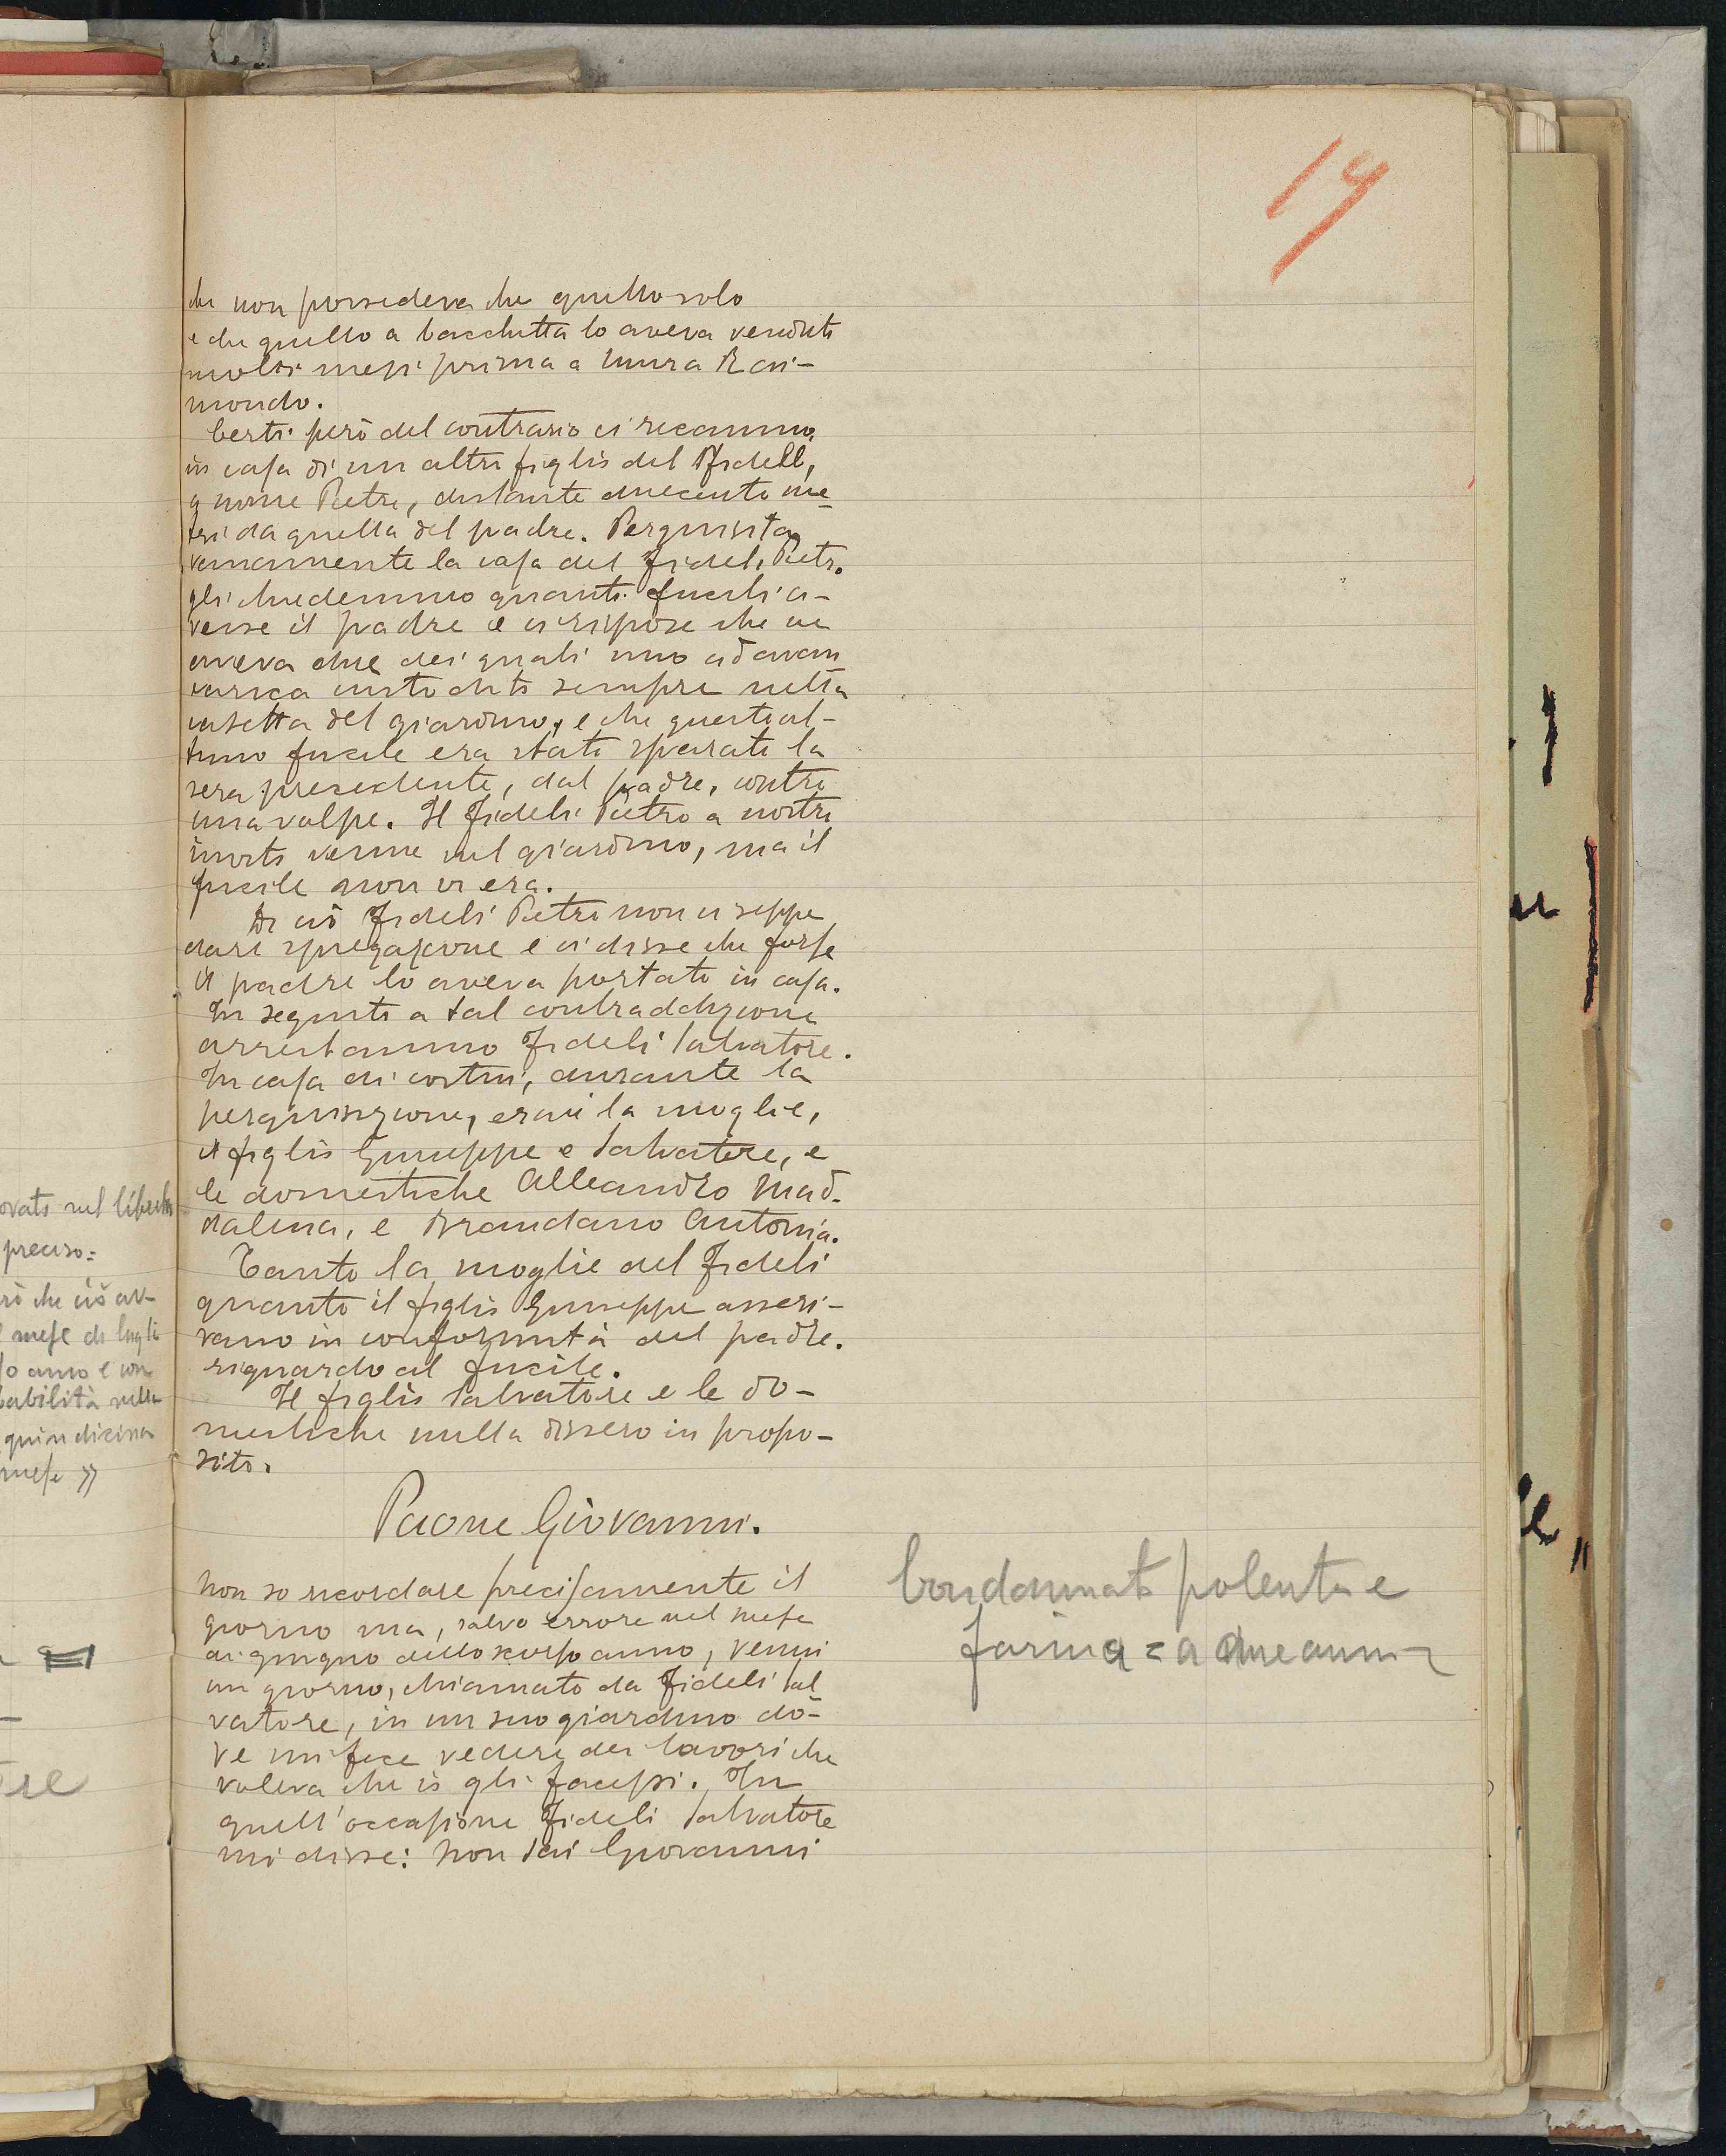 14
che non possedeva che quello solo
e che quello a bacchetta lo aveva venduto
molti mesi prima a Mura Rai-
mondo.
Certi però del contrario ci recammo
in casa di un altro figlio del Fideli,
a nome Pietro, distante duecento me-
tri da quella del padre. Perquisita
vanamente la casa del Fideli Pietro
gli chiedemmo quanti fucili a-
vesse il padre e ci rispose che ne
aveva due dei quali uno ad avan
carica custodito sempre nella
casetta del giardino, e che quest'ul-
timo fucile era stato sparato la
sera precedente, dal padre, contro
una volpe. Il Fideli Pietro a nostro
invito venne nel giardino, ma il
fucile non vi era.
Di ciò Fideli Pietro non ci seppe
dare spiegazione e ci disse che forse
il padre lo aveva portato in casa.
In seguito a tal contraddizione
arrestammo Fideli Salvatore.
In casa di costui, durante la
perquisizione, eravi la moglie,
il figlio Giuseppe e Salvatore, e
le domestiche Alleandro Mad-
dalena, e Brandano Antonia.
Tanto la moglie del Fideli
quanto il figlio Giuseppe asseri-
vano in conformità del padre.
riguardo al fucile.
Il figlio Salvatore e le do-
mestiche nulla dissero in propo-
sito.
Paone Giovanni.
Non so ricordare precisamente il
giorno ma, salvo errore nel mese
di giugno dello scorso anno, venni
un giorno, chiamato da Fideli Sal
vatore, in un suo giardino do-
ve mi fece vedere dei lavori che
voleva che io gli facessi. In
quell'occasione Fideli Salvatore
mi disse: Non sai Giovanni
Condannato polenta e
farina = a due anni
ovato nel libretto
preciso =
rò che ciò av-
l mese di lugli
so anno e con
babilità nella
quindicina
mese »